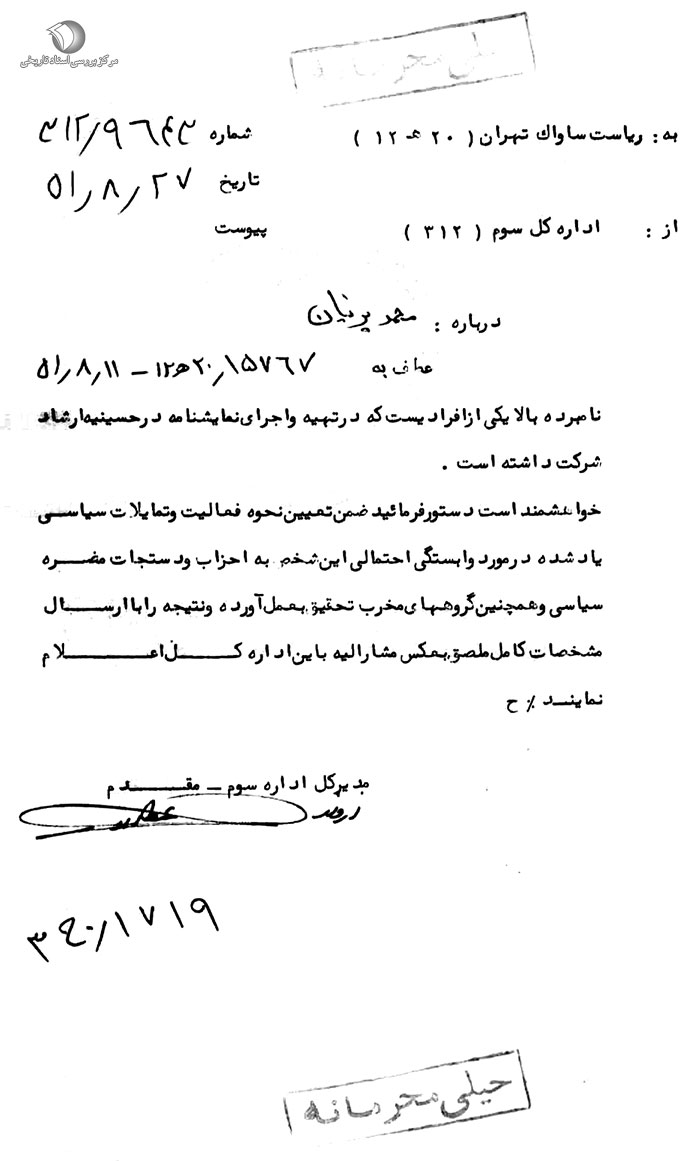 مرکز بررسی اسناد تاریخی
خیلی محرمانه
به: ریاست ساواک تهران ( ۲۰ هـ ۱۲ )
شماره ۳۱۲/۹۶۴۳
تاریخ ۵۱/۸/۲۷
از: اداره کل سوم ( ۳۱۲ )
پیوست
درباره : محمد پرنیان
عطف به ۲۰/۱۵۷۶۷ هـ ۱۲ – ۵۱/۸/۱۱
نامبرده بالا یکی از افرادیست که در تهیه و اجرای نمایشنامه در حسینیه ارشاد
شرکت داشته است .
خواهشمند است دستور فرمائید ضمن تعیین نحوه فعالیت و تمایلات سیاسی
یاد شده در مورد وابستگی احتمالی این شخص به احزاب و دستجات مضره
سیاسی و همچنین گروههای مخرب تحقیق بعمل آورده و نتیجه را با ارسال
مشخصات کامل ملصق بعکس مشارالیه باین اداره کل اعلام
نمایند ٪ ح
مدیرکل اداره سوم – مقدم
خیلی محرمانه